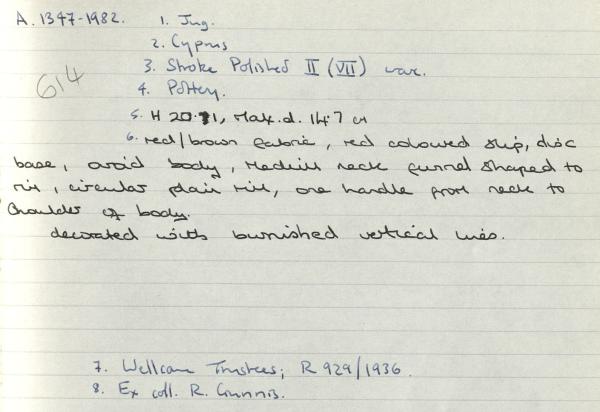 A. 1347-1982. 1. Jug.
2. Cyprus
3. Stroke Polished II (VII) ware.
4. Pottery.
614
5. H 20.1, Max. d. 14.7 cm
6. red/brown fabric, red coloured slip, disc
base, ovoid body, medium neck funnel shaped to
rim, circular plain rim, one handle from neck to
shoulder of body.
decorated with burnished vertical lines.
7. Wellcome Trustees; R 929/1936.
8. Ex coll. R. Gunnis.